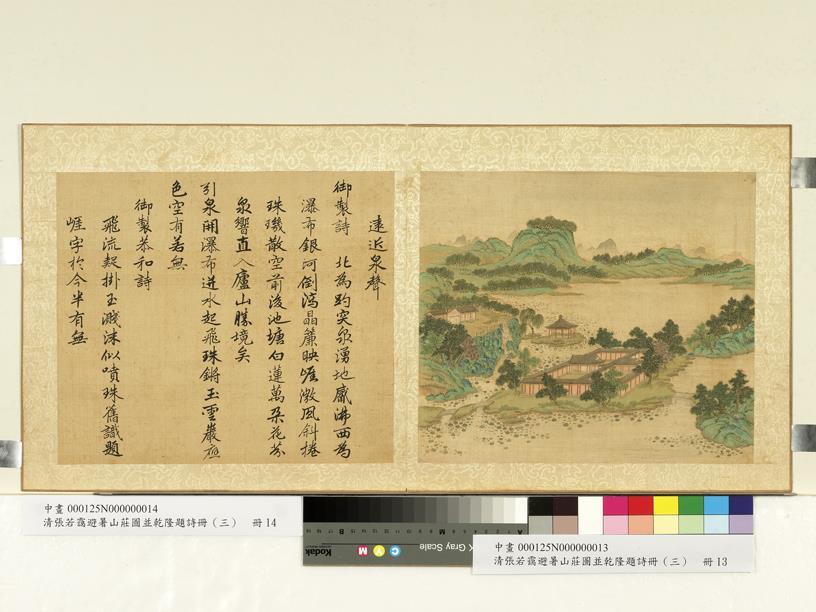 遠近泉聲
御製詩 北為趵突泉湧地觱沸西為
瀑布銀河倒瀉晶簾映崖激風斜捲
珠璣散空前後池塘白蓮萬朶花芬
泉響直入廬山勝境矣
引泉開瀑布迸水起飛珠鏘玉雲巖應
色空有若無
御製恭和詩
飛流掛玉濺沫似噴珠舊識題
崖字於今半有無
中畫 000125N000000014
清張若靄避暑山莊圖並乾隆題詩冊（三） 冊 14
Kodak
C Y M
K Gray Scale
A M B
中畫 000125N000000013
清張若靄避暑山莊圖並乾隆題詩冊（三） 冊 13